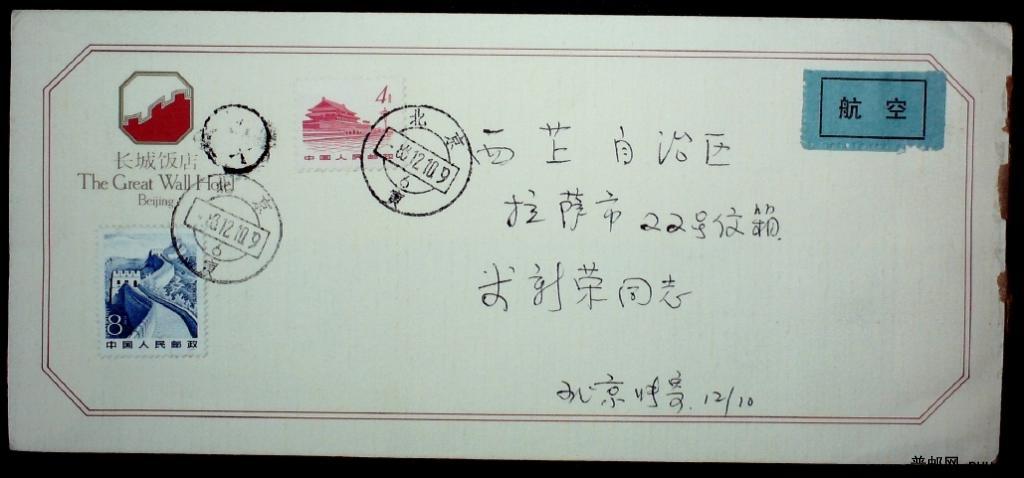 航空
长城饭店
The Great Wall Hotel
Beijing
4分
中国人民邮政
北京
83.12.10.9
6
西芷自治区
拉萨市22号信箱
新荣同志
8分
中国人民邮政
北京
83.12.10.9
6
北京 寄. 12/10
普邮网